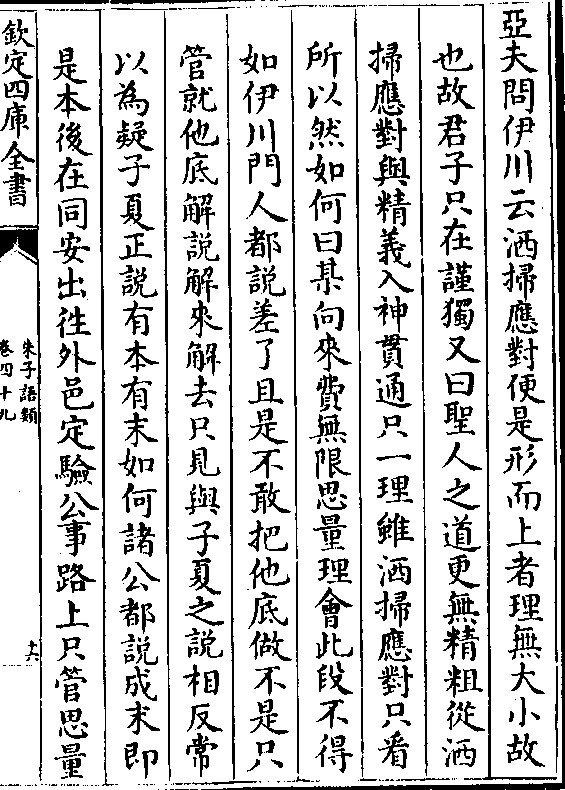 亞夫問伊川云洒掃應對便是形而上者理無大小故
也故君子只在謹獨又曰聖人之道更無精粗從洒
掃應對與精義入神貫通只一理雖洒掃應對只看
所以然如何曰某向來費無限思量理會此段不得
如伊川門人都說差了且是不敢把他底做不是只
管就他底解說解來解去只見與子夏之說相反常
以為疑子夏正說有本有末如何諸公都說成末即
是本後在同安出徃外邑定驗公事路上只管思量
欽定四庫全書
朱子語類
卷四十九
十六